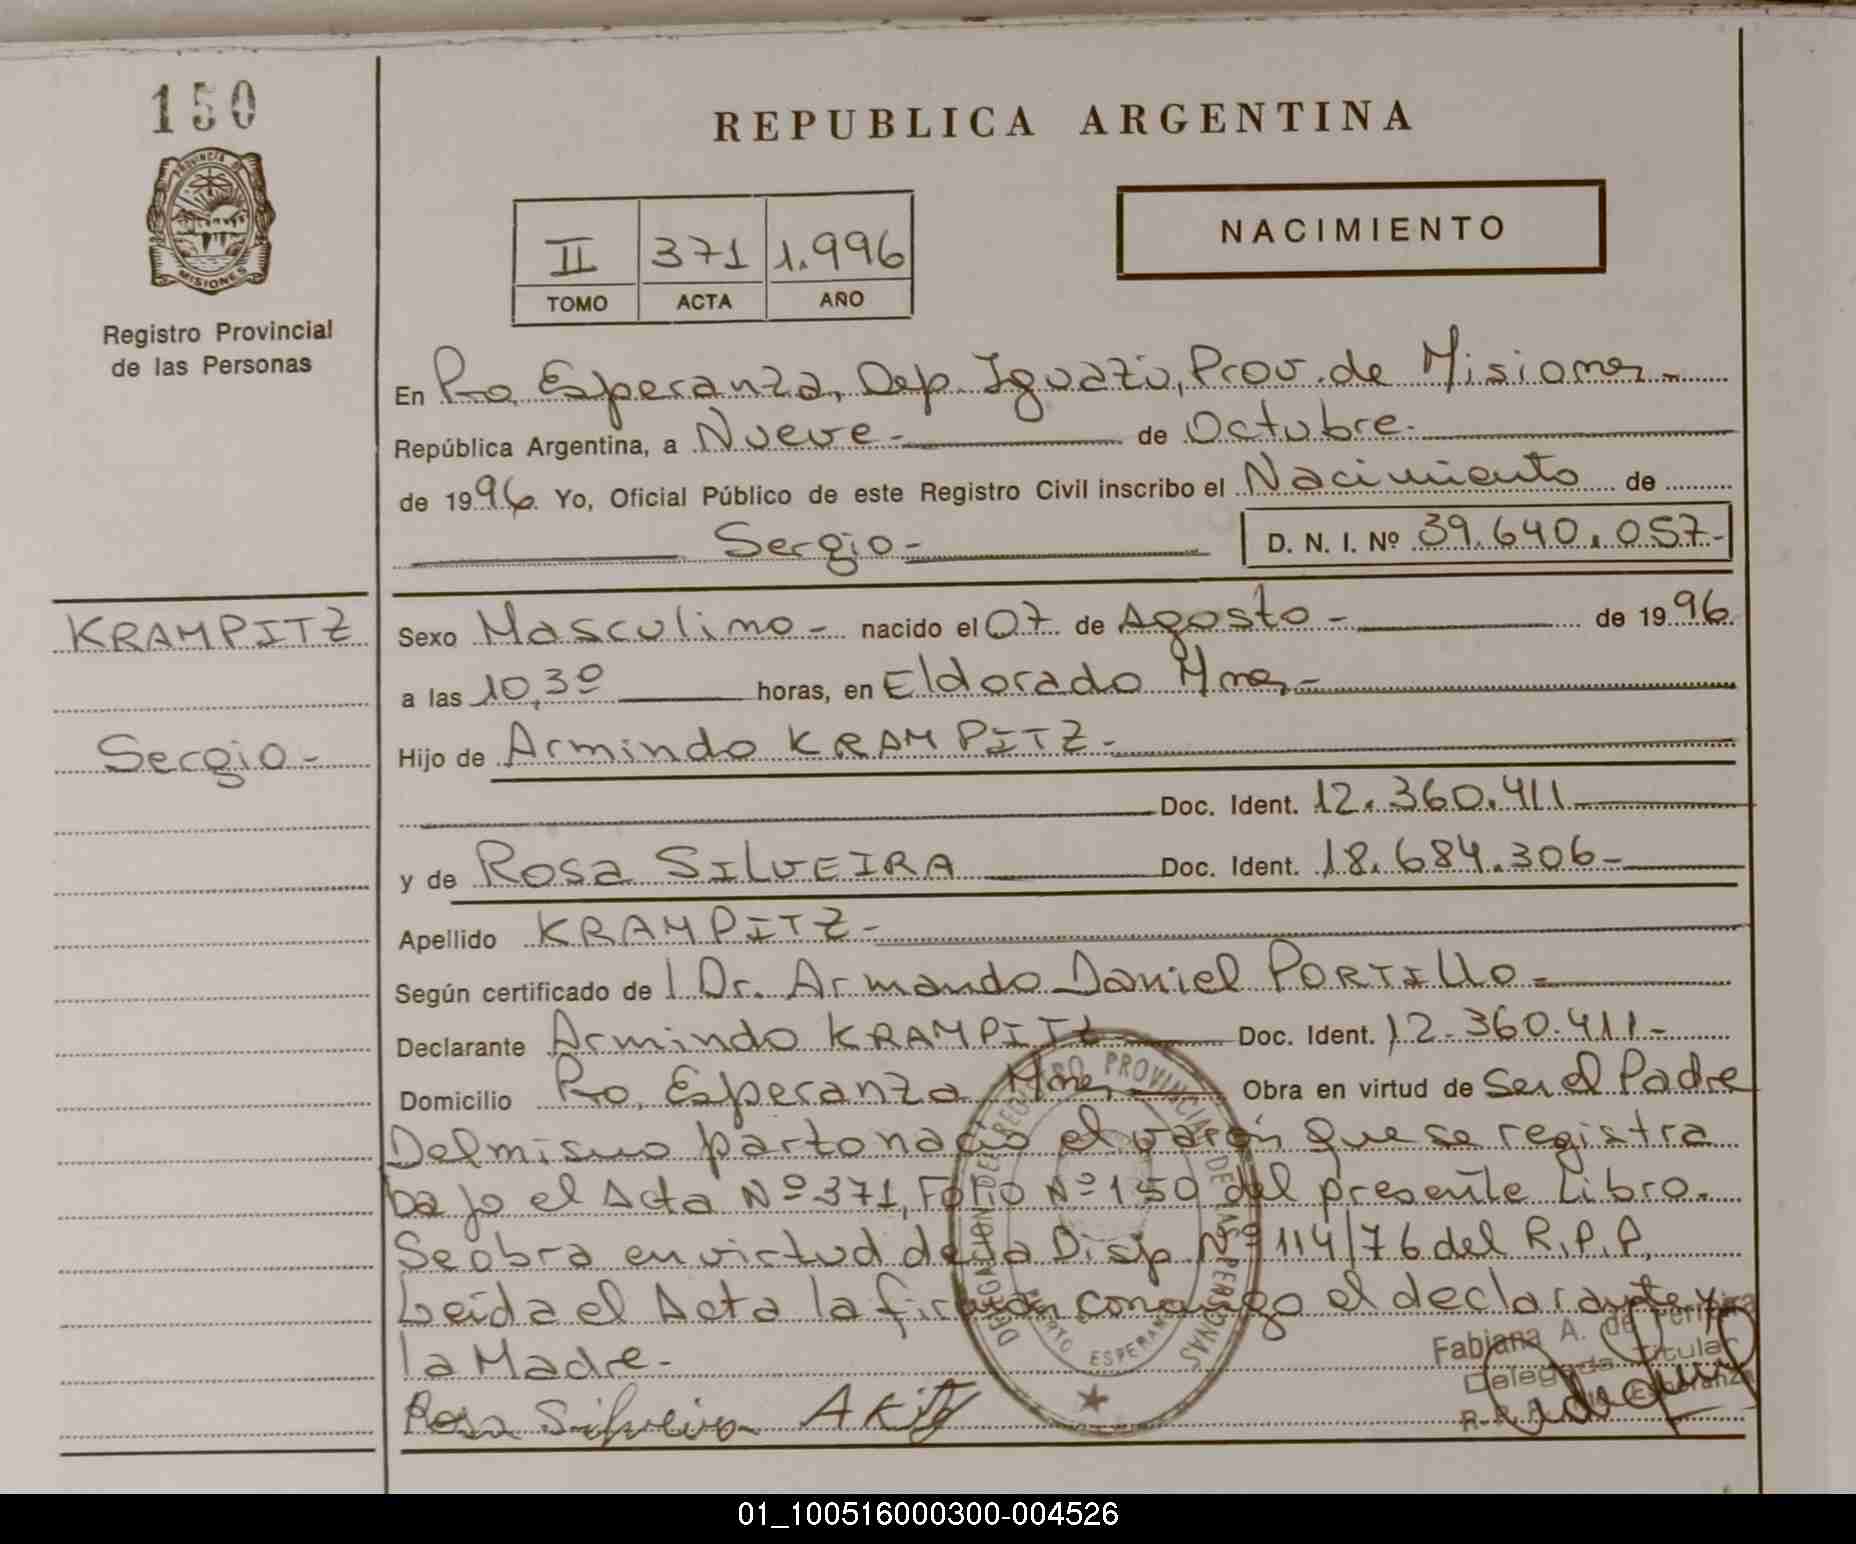 150
PROVINCIA DE
MISIONES
Registro Provincial
de las Personas
REPUBLICA ARGENTINA
II 371 1.996
TOMO ACTA AÑO
NACIMIENTO
En Pto. Esperanza, Dep. Iguazú, Prov. de Misiones-
República Argentina, a Nueve- de Octubre-
de 1996. Yo, Oficial Público de este Registro Civil inscribo el Nacimiento de
Sergio- D. N. I. Nº 39.640.057-
KRAMPITZ
Sergio-
Sexo Masculino- nacido el 07 de Agosto- de 1996.
a las 10,30 horas, en Eldorado Mnes-
Hijo de Armindo KRAMPITZ-
Doc. Ident. 12.360.411
y de Rosa SILVEIRA Doc. Ident. 18.684.306-
Apellido KRAMPITZ-
Según certificado de l Dr. Armando Daniel PORTILLO-
Declarante Armindo KRAMPITZ Doc. Ident. 12.360.411-
Domicilio Pto. Esperanza Mnes Obra en virtud de Ser el Padre
Del mismo parto nació el varón que se registra
bajo el Acta Nº 371, Folio Nº 150 del presente Libro.
Se obra en virtud de la Disp. Nº 114/76 del R.P.P.
Leída el Acta la firman conmigo el declarante y
la Madre-
Rosa Silveira
DELEGACION DEL REGISTRO PROVINCIAL DE LAS PERSONAS
PUERTO ESPERANZA
Fabiana A. de
Delegada Titular
Esperanza
01_100516000300-004526